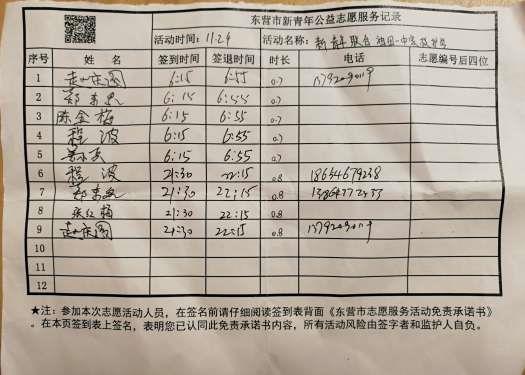 东营市新青年公益志愿服务记录
活动时间：11-29 活动名称：新青年联合
序号 姓名 签到时间 签退时间 时长 电话 志愿编号后四位
1 6:15 6:55 0.7
2 6:15 6:55 0.7
3 陈金梅 6:15 6:55 0.7
4 程波 6:15 6:55 0.7
5 6:15 6:55 0.7
6 程波 21:30 22:15 0.8
7 21:30 22:15 0.8
8 张红梅 21:30 22:15 0.8
9 21:30 22:15 0.8
10
11
12
★注：参加本次志愿活动人员，在签名前请仔细阅读签到表背面《东营市志愿服务活动免责承诺书》
。在本页签到表上签名，表明您已认同此免责承诺书内容，所有活动风险由签字者和监护人自负。